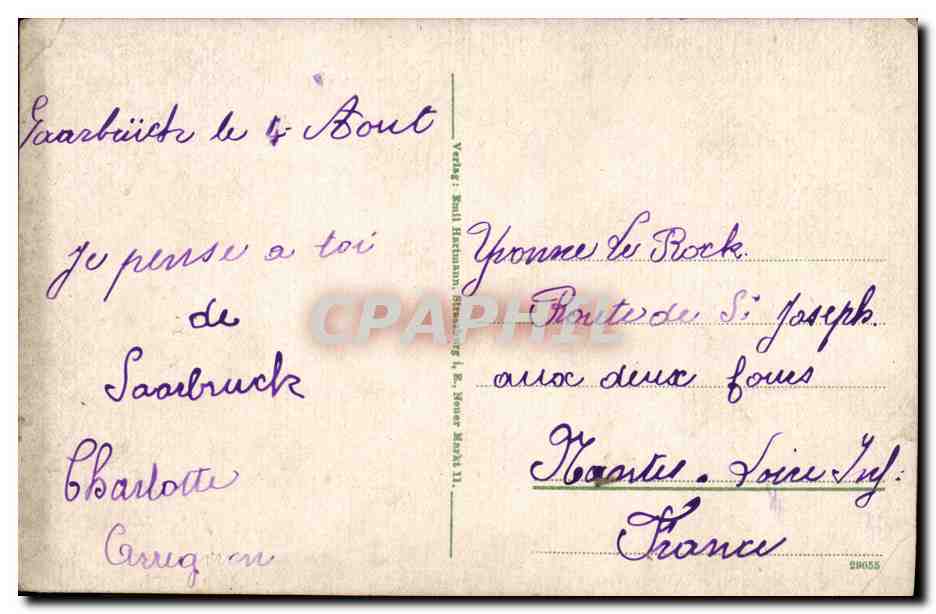 Saarbrück le 4 Aout
Je pense a toi
de
Saarbruck
Charlotte
Verlag: Emil Hartmann, Strassburg i. E., Neuer Markt 11.
Yvonne Le Rock
Route de St Joseph.
aux deux fours
Nantes. Loire Inf:
France
29655
CPAPHIL